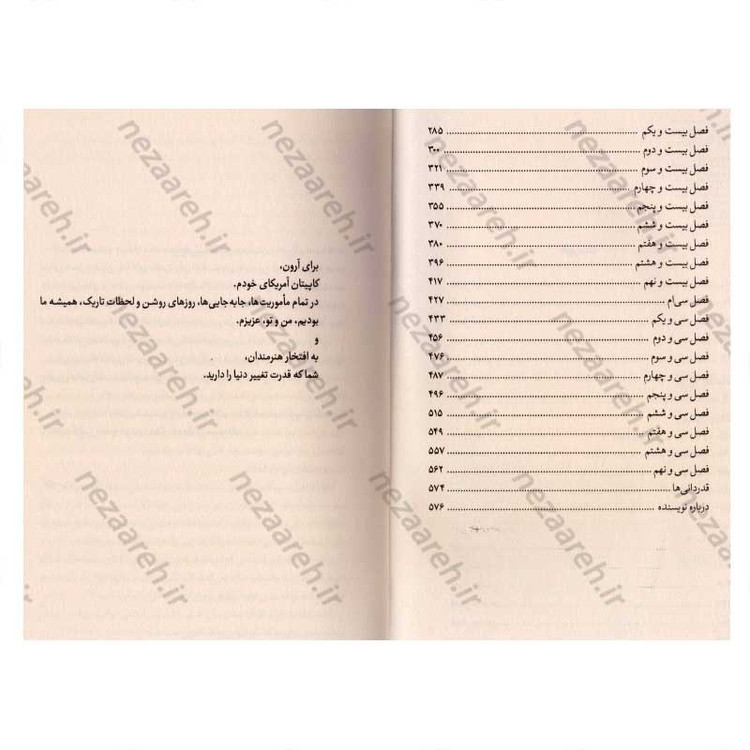 فصل بیست و یکم ........ ۲۸۵
فصل بیست و دوم ........ ۳۰۰
فصل بیست و سوم ........ ۳۲۱
فصل بیست و چهارم ........ ۳۳۹
فصل بیست و پنجم ........ ۳۵۵
فصل بیست و ششم ........ ۳۷۰
فصل بیست و هفتم ........ ۳۸۰
فصل بیست و هشتم ........ ۳۹۶
فصل بیست و نهم ........ ۴۱۷
فصل سی‌ام ........ ۴۲۷
فصل سی و یکم ........ ۴۳۳
فصل سی و دوم ........ ۴۵۶
فصل سی و سوم ........ ۴۷۶
فصل سی و چهارم ........ ۴۸۷
فصل سی و پنجم ........ ۴۹۶
فصل سی و ششم ........ ۵۱۵
فصل سی و هفتم ........ ۵۴۹
فصل سی و هشتم ........ ۵۵۷
فصل سی و نهم ........ ۵۶۲
قدردانی‌ها ........ ۵۷۴
درباره نویسنده ........ ۵۷۶
برای آرون،
کاپیتان آمریکای خودم.
در تمام مأموریت‌ها، جابه جایی‌ها، روزهای روشن و لحظات تاریک، همیشه ما
بودیم، من و تو، عزیزم.
و
به افتخار هنرمندان،
شما که قدرت تغییر دنیا را دارید.
nezaareh.ir